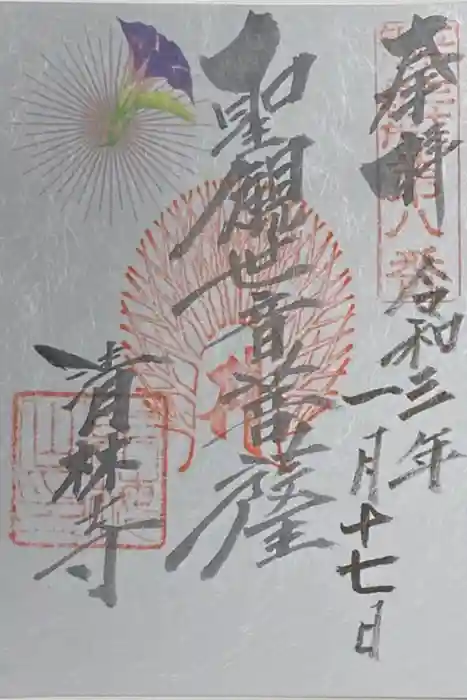 奉拝
令和三年
一月十七日
聖観世音菩薩
清林寺